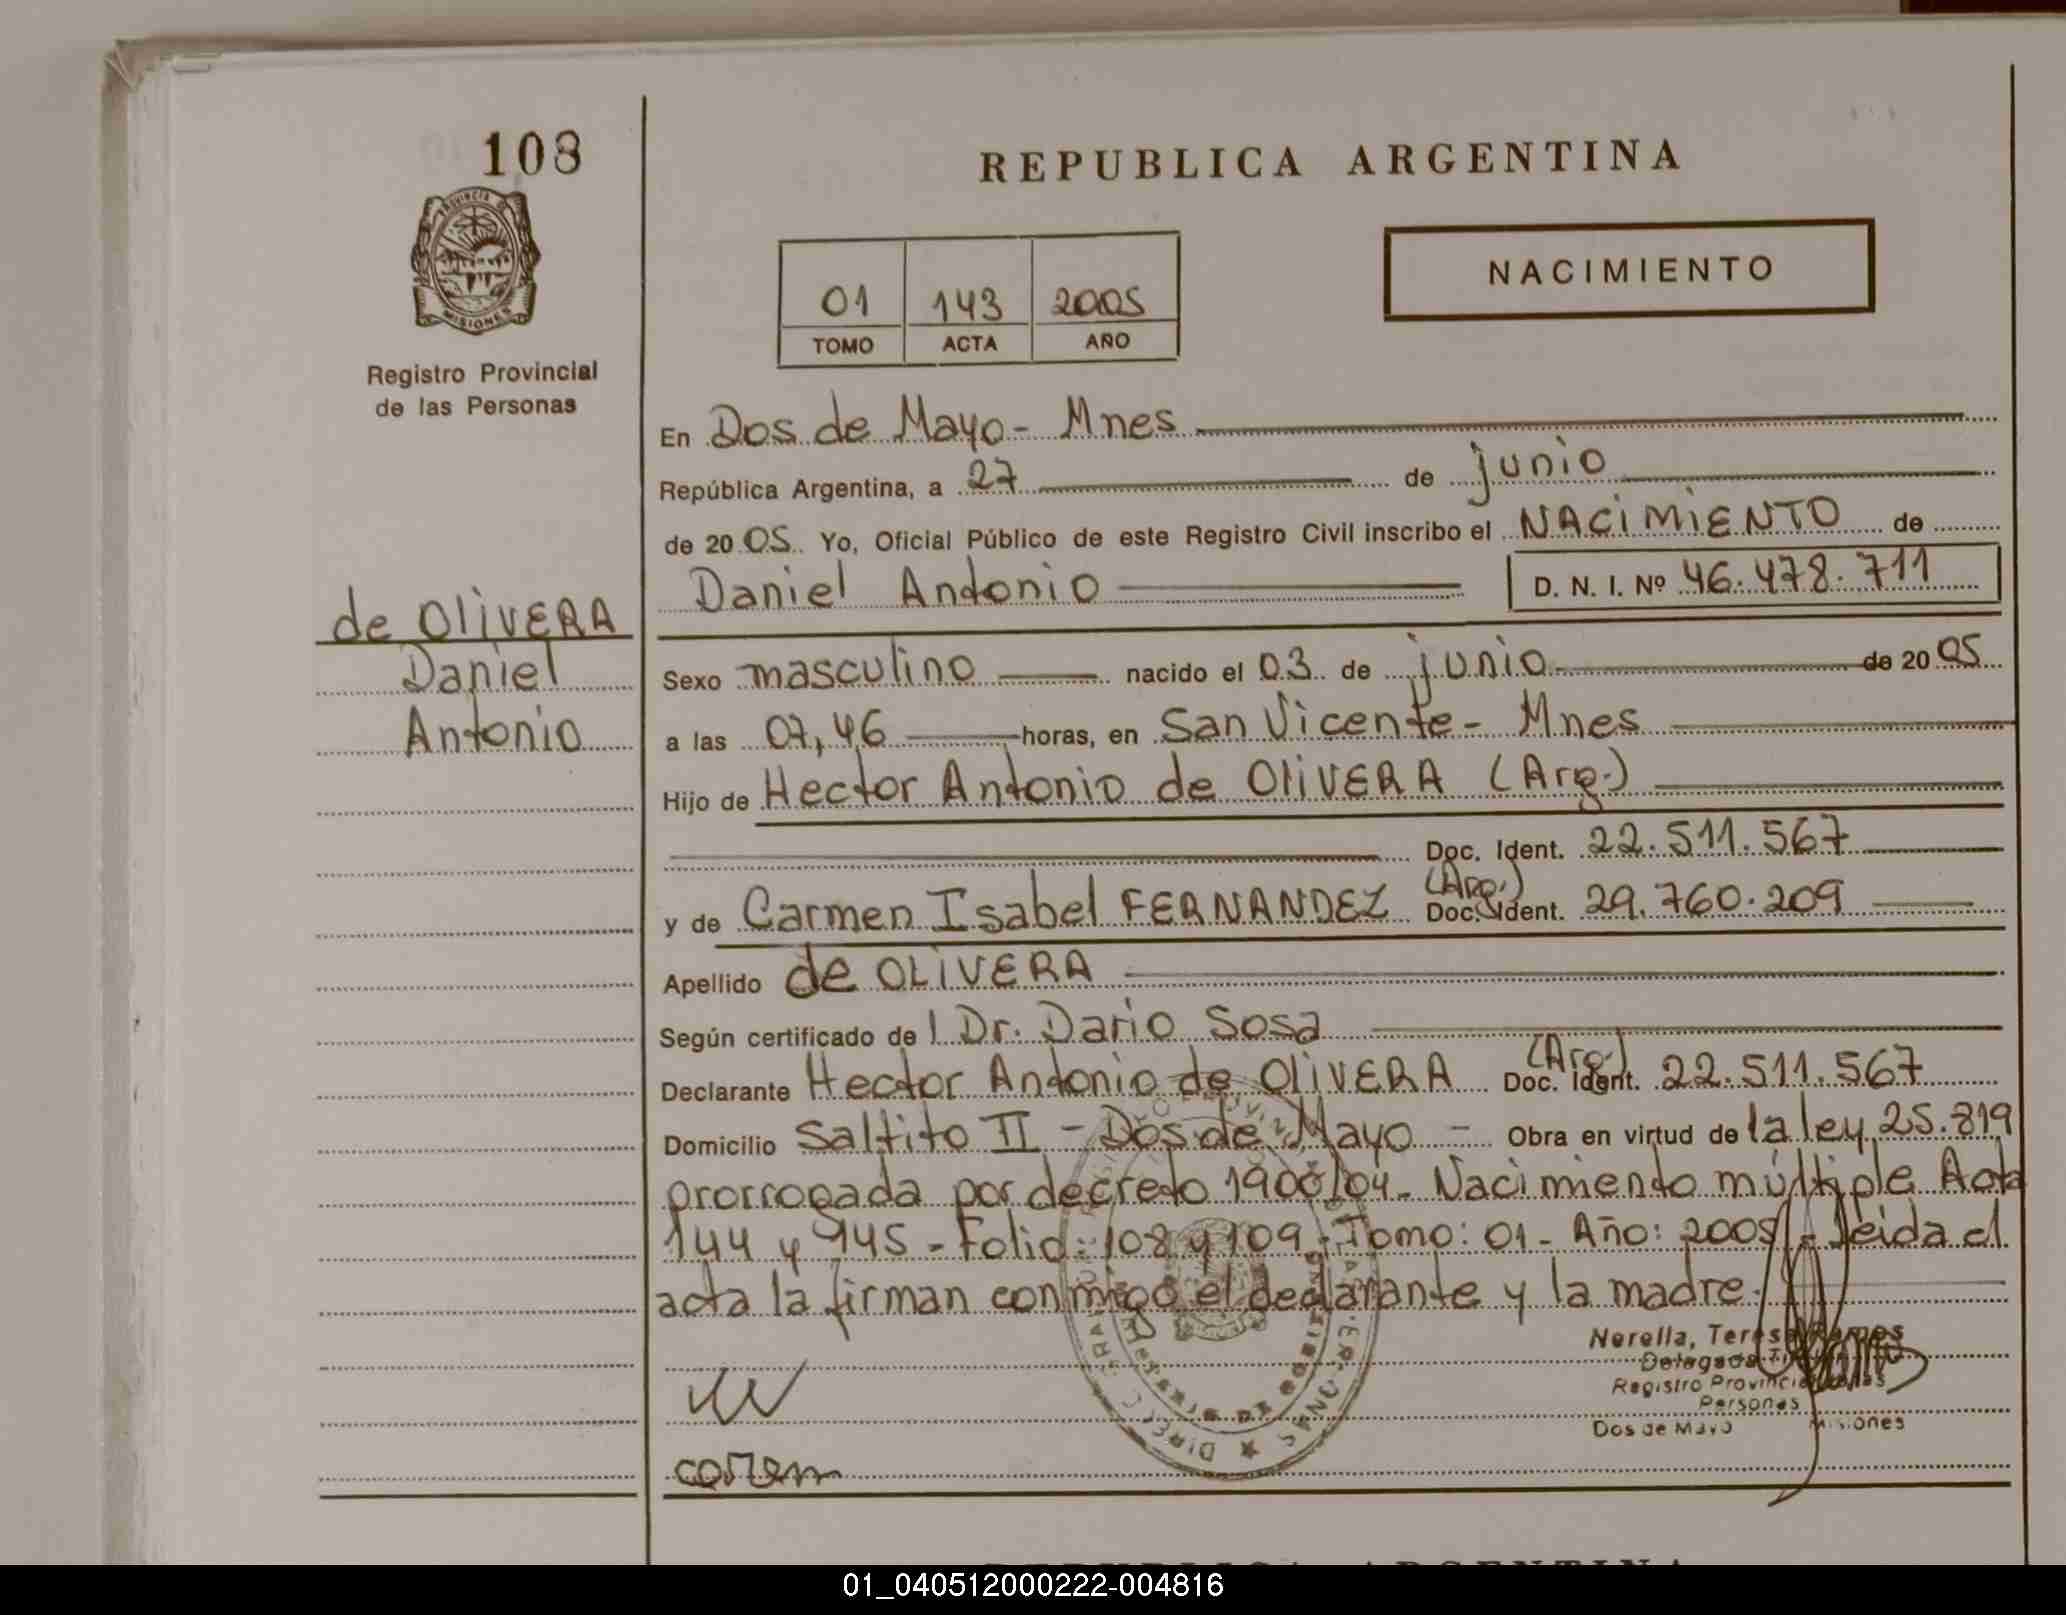 108
PROVINCIA D
MISIONES
Registro Provincial
de las Personas
de OliVERA
Daniel
Antonio
REPUBLICA ARGENTINA
NACIMIENTO
01 143 2005
TOMO ACTA AÑO
En Dos de Mayo - Mnes
República Argentina, a 27 de junio
de 2005. Yo, Oficial Público de este Registro Civil inscribo el NACIMIENTO de
Daniel Antonio D. N. I. Nº 46.478.711
Sexo masculino nacido el 03 de junio de 2005
a las 07,46 horas, en San Vicente - Mnes
Hijo de Hector Antonio de OliVERA (Arg.)
Doc. Ident. 22.511.567
y de Carmen Isabel FERNANDEZ (Arg.) Doc. Ident. 29.760.209
Apellido de OLIVERA
Según certificado de l Dr. Dario Sosa
Declarante Hector Antonio de OliVERA (Arg.) Doc. Ident. 22.511.567
Domicilio Saltito II - Dos de Mayo - Obra en virtud de la ley 25.819
prorrogada por decreto 1900/04 - Nacimiento múltiple Acta
144 y 145 - Folio: 108 y 109 - Tomo: 01 - Año: 2005 - Leida el
acta la firman conmigo el declarante y la madre.
Norella, Teresa Ramos
Delegada
Registro Provincial de las
Personas
Dos de Mayo Misiones
carmen
01_040512000222-004816